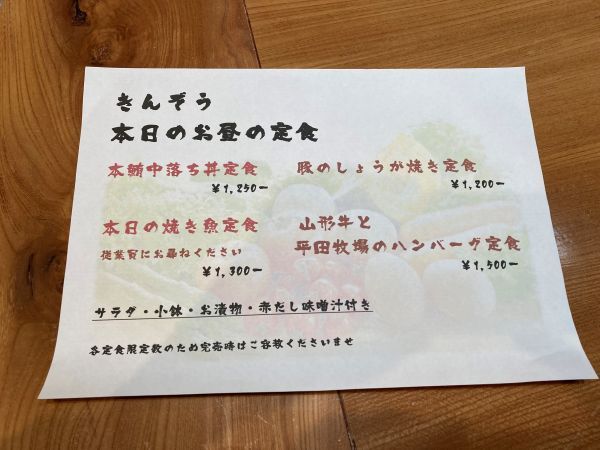 きんぞう
本日のお昼の定食
本鮪中落ち丼定食
¥1,250−
豚のしょうが焼き定食
¥1,200−
本日の焼き魚定食
従業員にお尋ねください
¥1,300−
山形牛と
平田牧場のハンバーグ定食
¥1,500−
サラダ・小鉢・お漬物・赤だし味噌汁付き
各定食限定数のため完売時はご容赦くださいませ